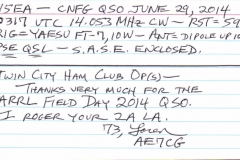 15EA — CNFG QSO JUNE 29, 2014
0317 UTC 14.053 MHZ CW — RST = 59
RIG = YAESU FT-7, 10W — ANT = DIPOLE UP 10
PSE QSL — S.A.S.E. ENCLOSED.
TWIN CITY HAM CLUB OP(S) —
THANKS VERY MUCH FOR THE
ARRL FIELD DAY 2014 QSO.
I ROGER YOUR 2A LA.
73,
AE7CG